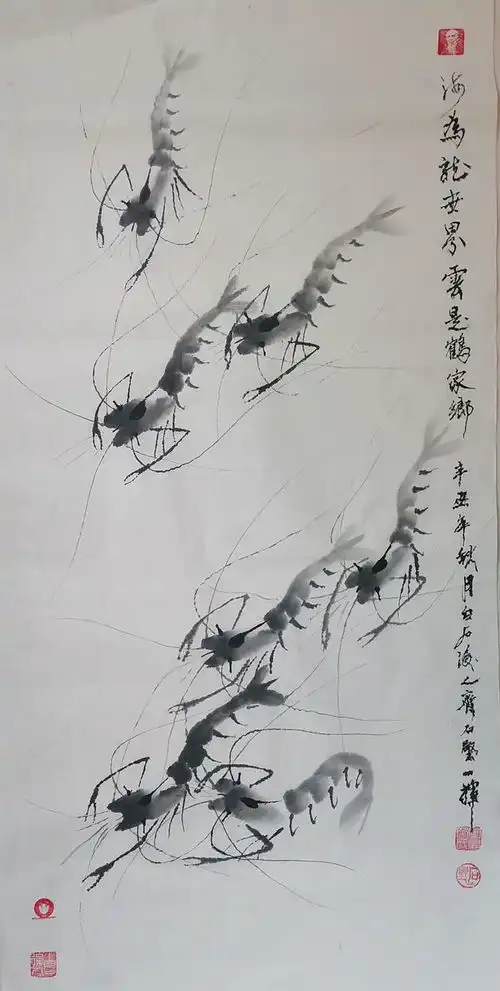 海為龍世界雲是鶴家鄉
辛丑年秋月白石後人齊石繁一揮